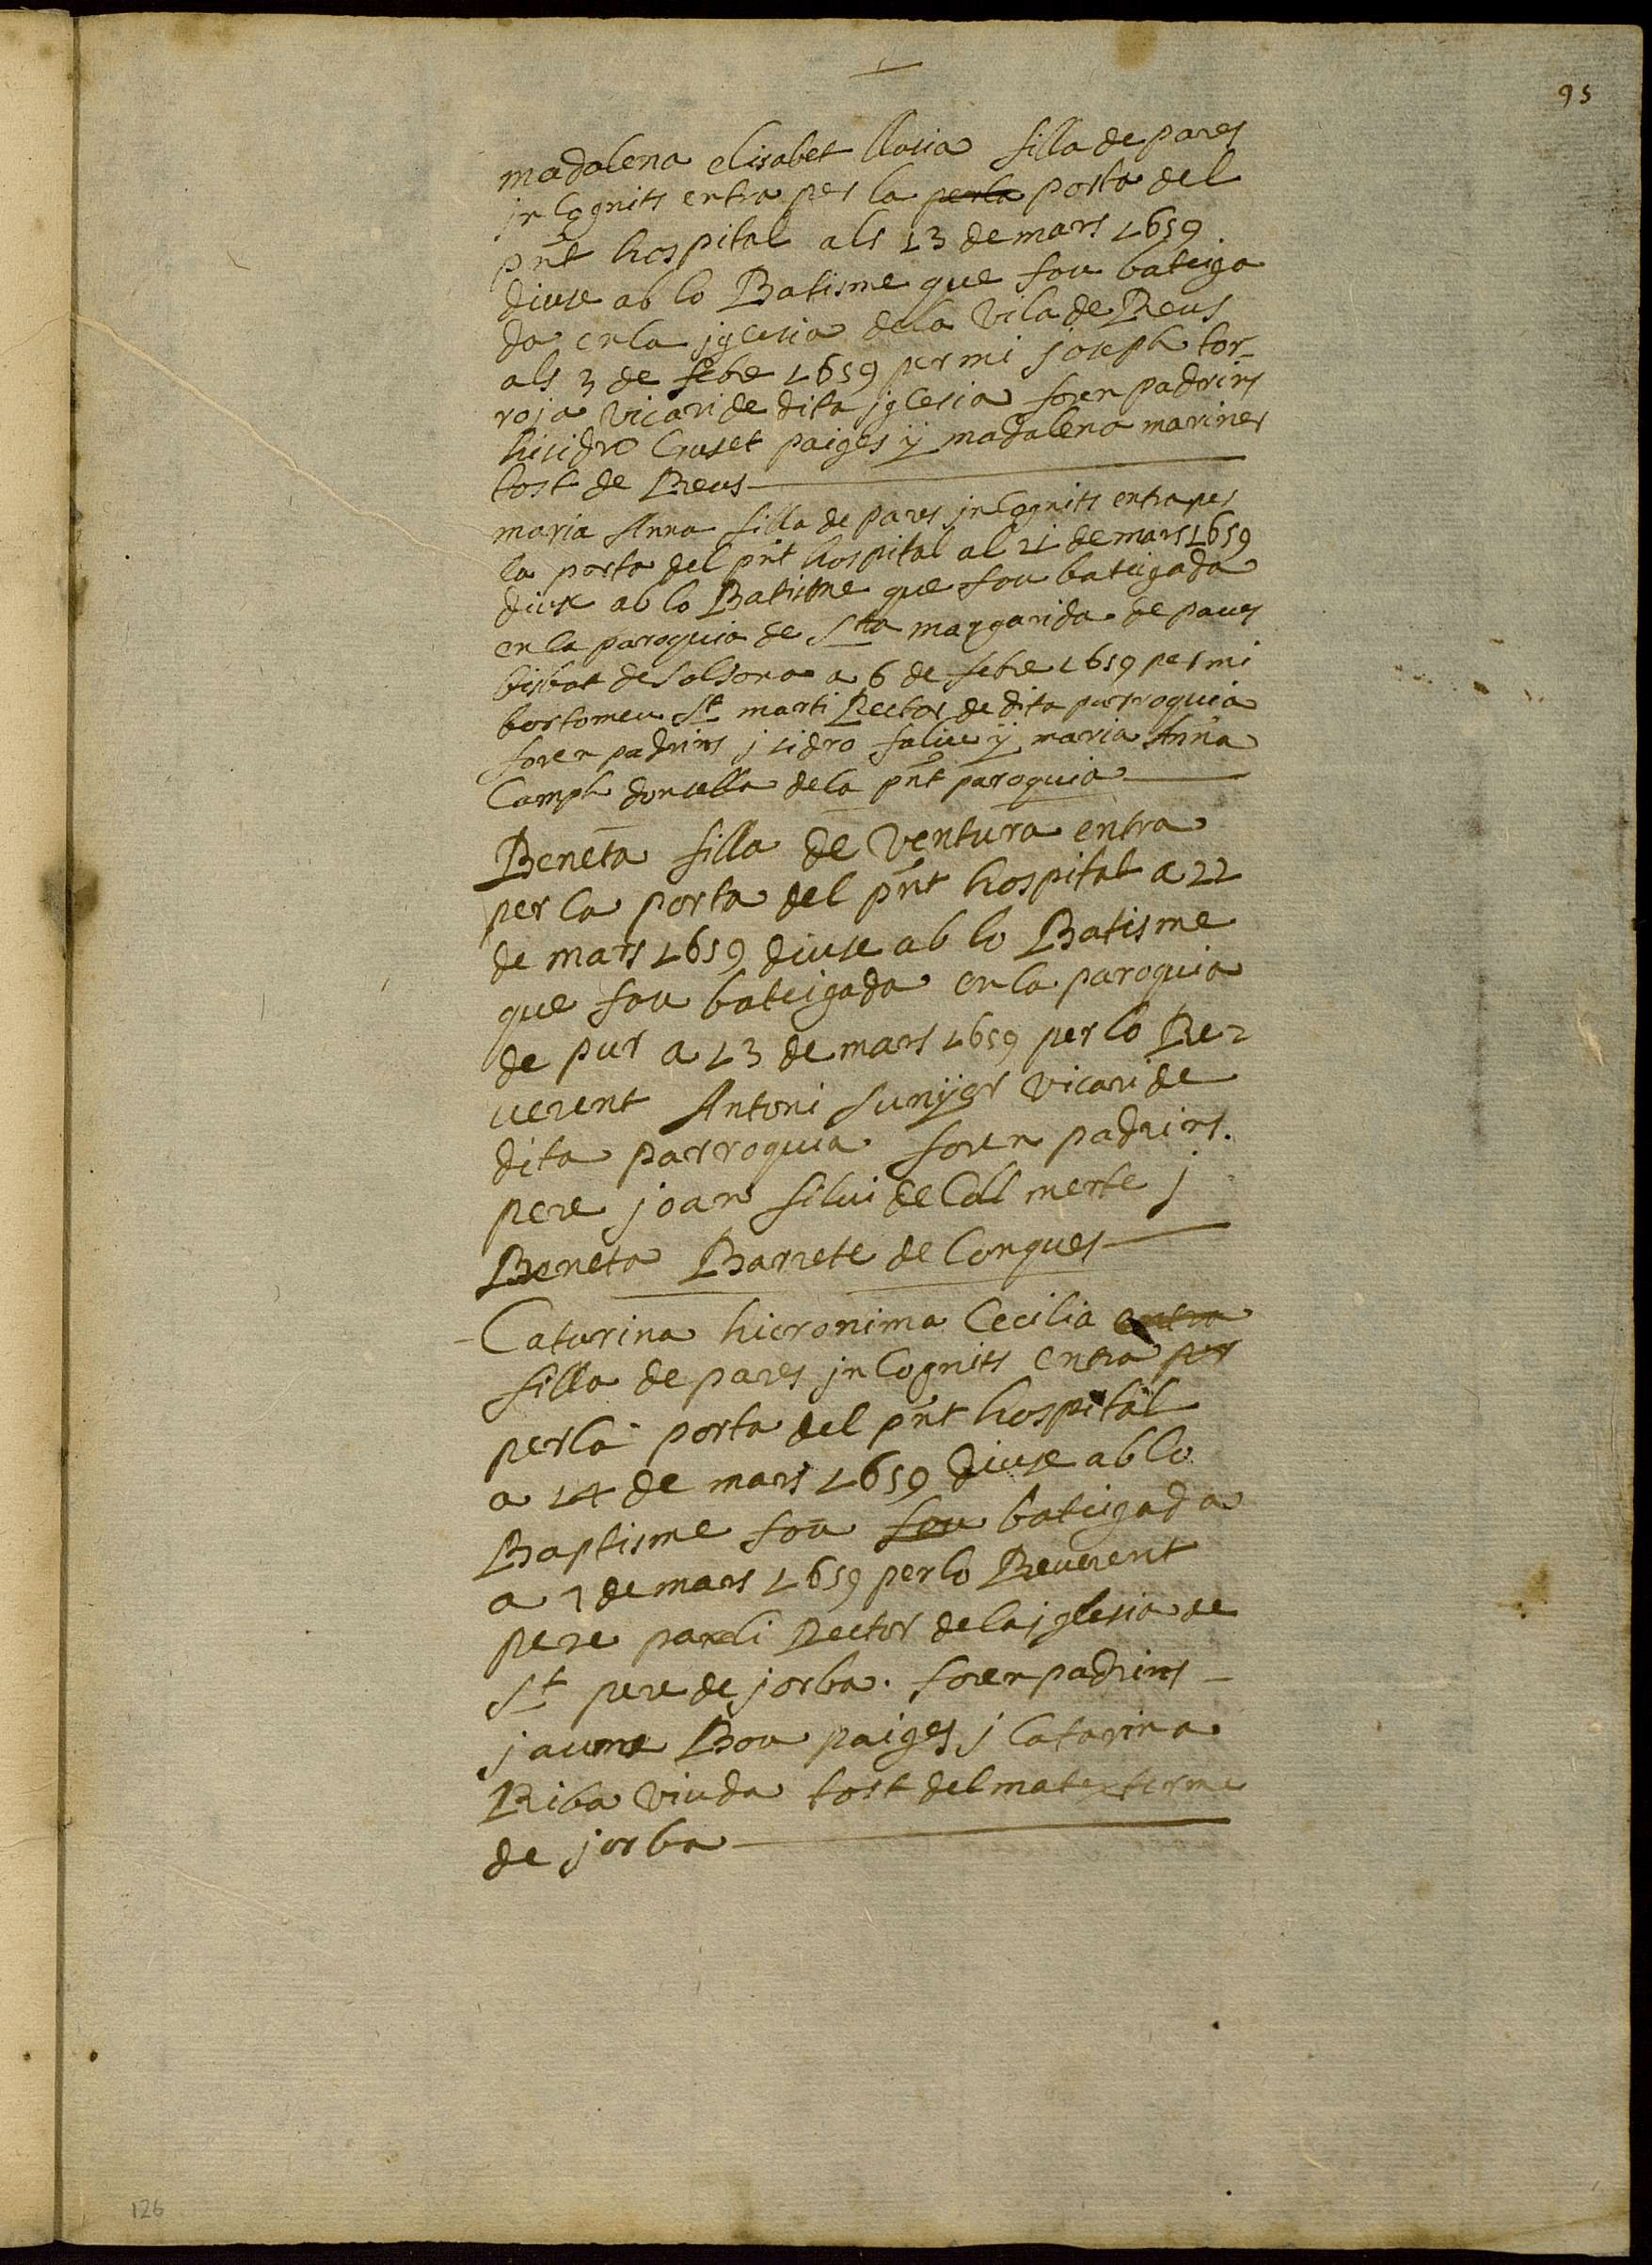 95
madalena elisabet llusia filla de pares
jncognits entra per la perla porta del
pnt hospital als 13 de mars 1659
diuse ab lo Batisme que fou bateiga
da en la jglesia dela Vila de Reus
als 3 de febe 1659 per mi joseph tor-
roja Vicari de dita jglesia foren padrins
hisidro Gruset paiges ÿ madalena mariner
tost de Reus
maria Anna filla de pares jncognits entra per
la porta del pnt hospital al 21 de mars 1659
diuse ab lo Batisme que fou bateigada
en la paroquia de Sta margarida de
bisbat de Solsona a 6 de febe 1659 per mi
bortomeu St marti Rector de dita parroquia
foren padrins jsidro ÿ maria Anna
Camph donsella dela pnt paroquia
Beneta filla de Ventura entra
per la porta del pnt hospital a 22
de mars 1659 diuse ab lo Batisme
que fou bateigada en la paroquia
de pur a 13 de mars 1659 per lo Re
uerent Antoni sunÿer vicari de
dita parroquia foren padrins.
pere joan silui de Coll merte j
Beneta Barrete de Conques
Catarina hieronima Cecilia entra
filla de pares jncognits entra per
perla porta del pnt hospital
a 24 de mars 1659 diuse ab lo
Baptisme fou fou bateigada
a 7 de mars 1659 per lo Reuerent
pere Rector de la jglesia de
St pere de jorba. foren padrins
jaume Bou paiges j Catarina
Riba viuda tost del matex terme
de jorba
126